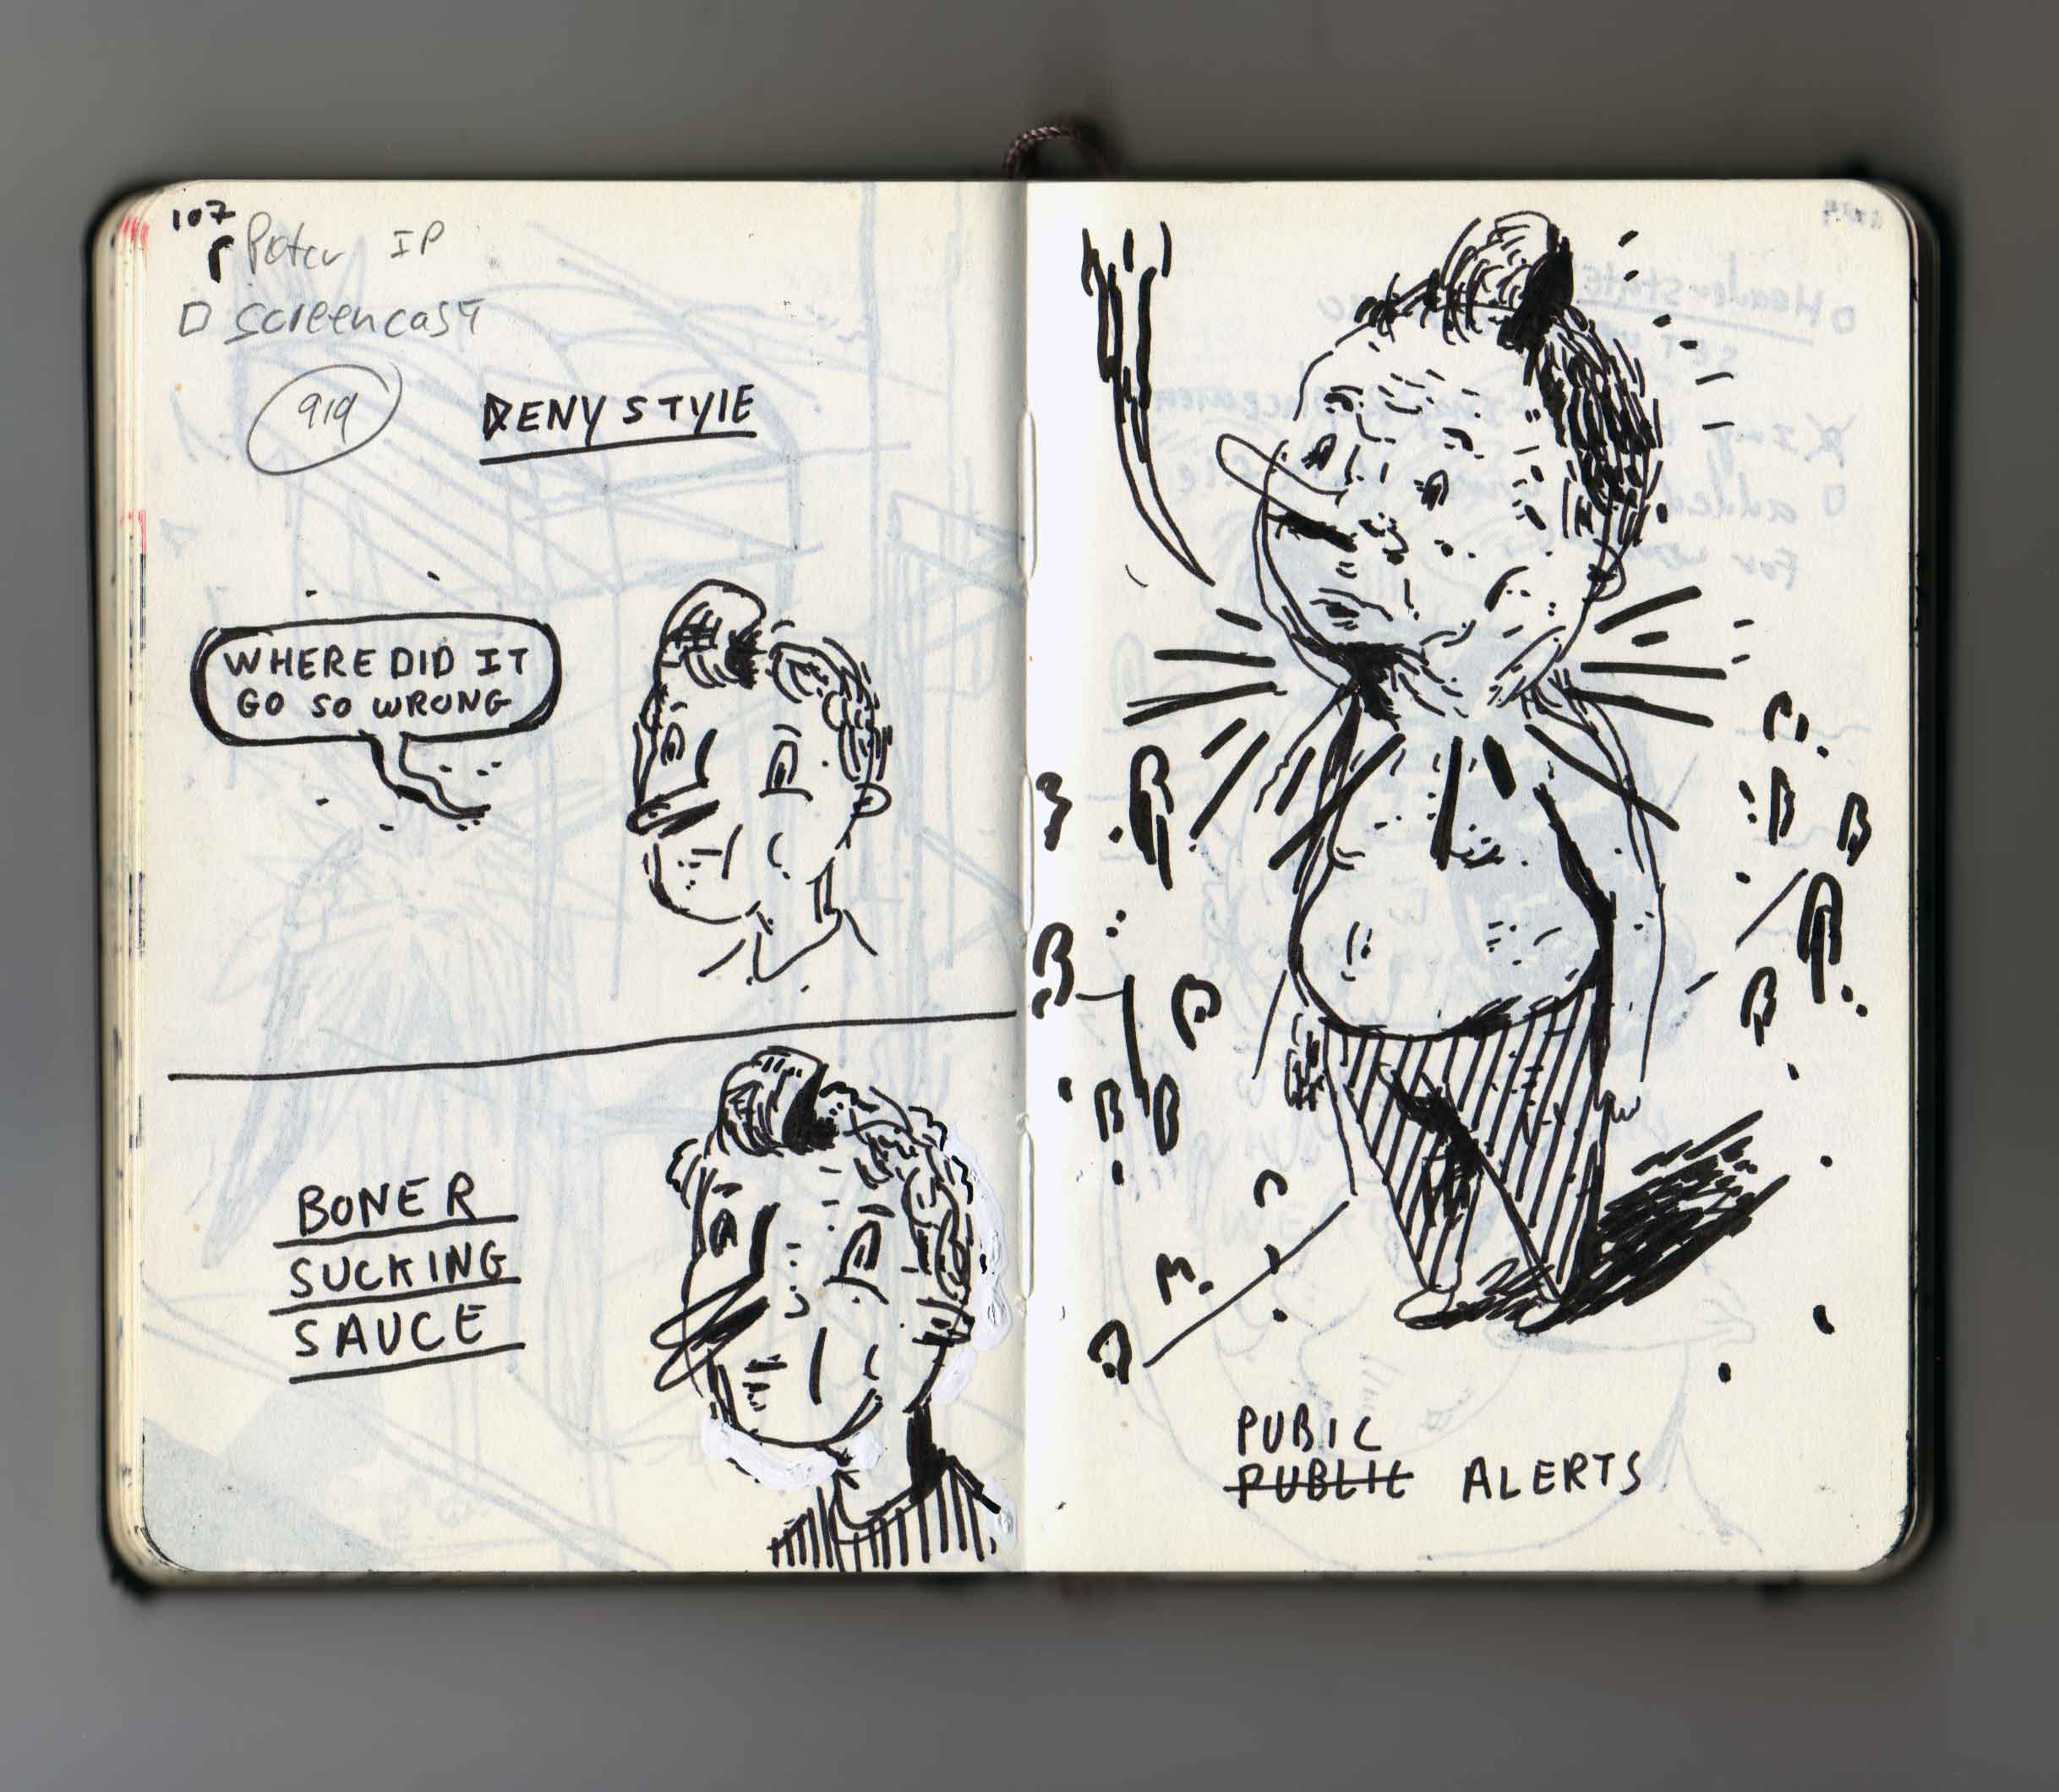 107
IP
screencast
919
DENY STYLE
WHERE DID IT
GO SO WRONG
BONER
SUCKING
SAUCE
PUBIC
PUBLIC ALERTS